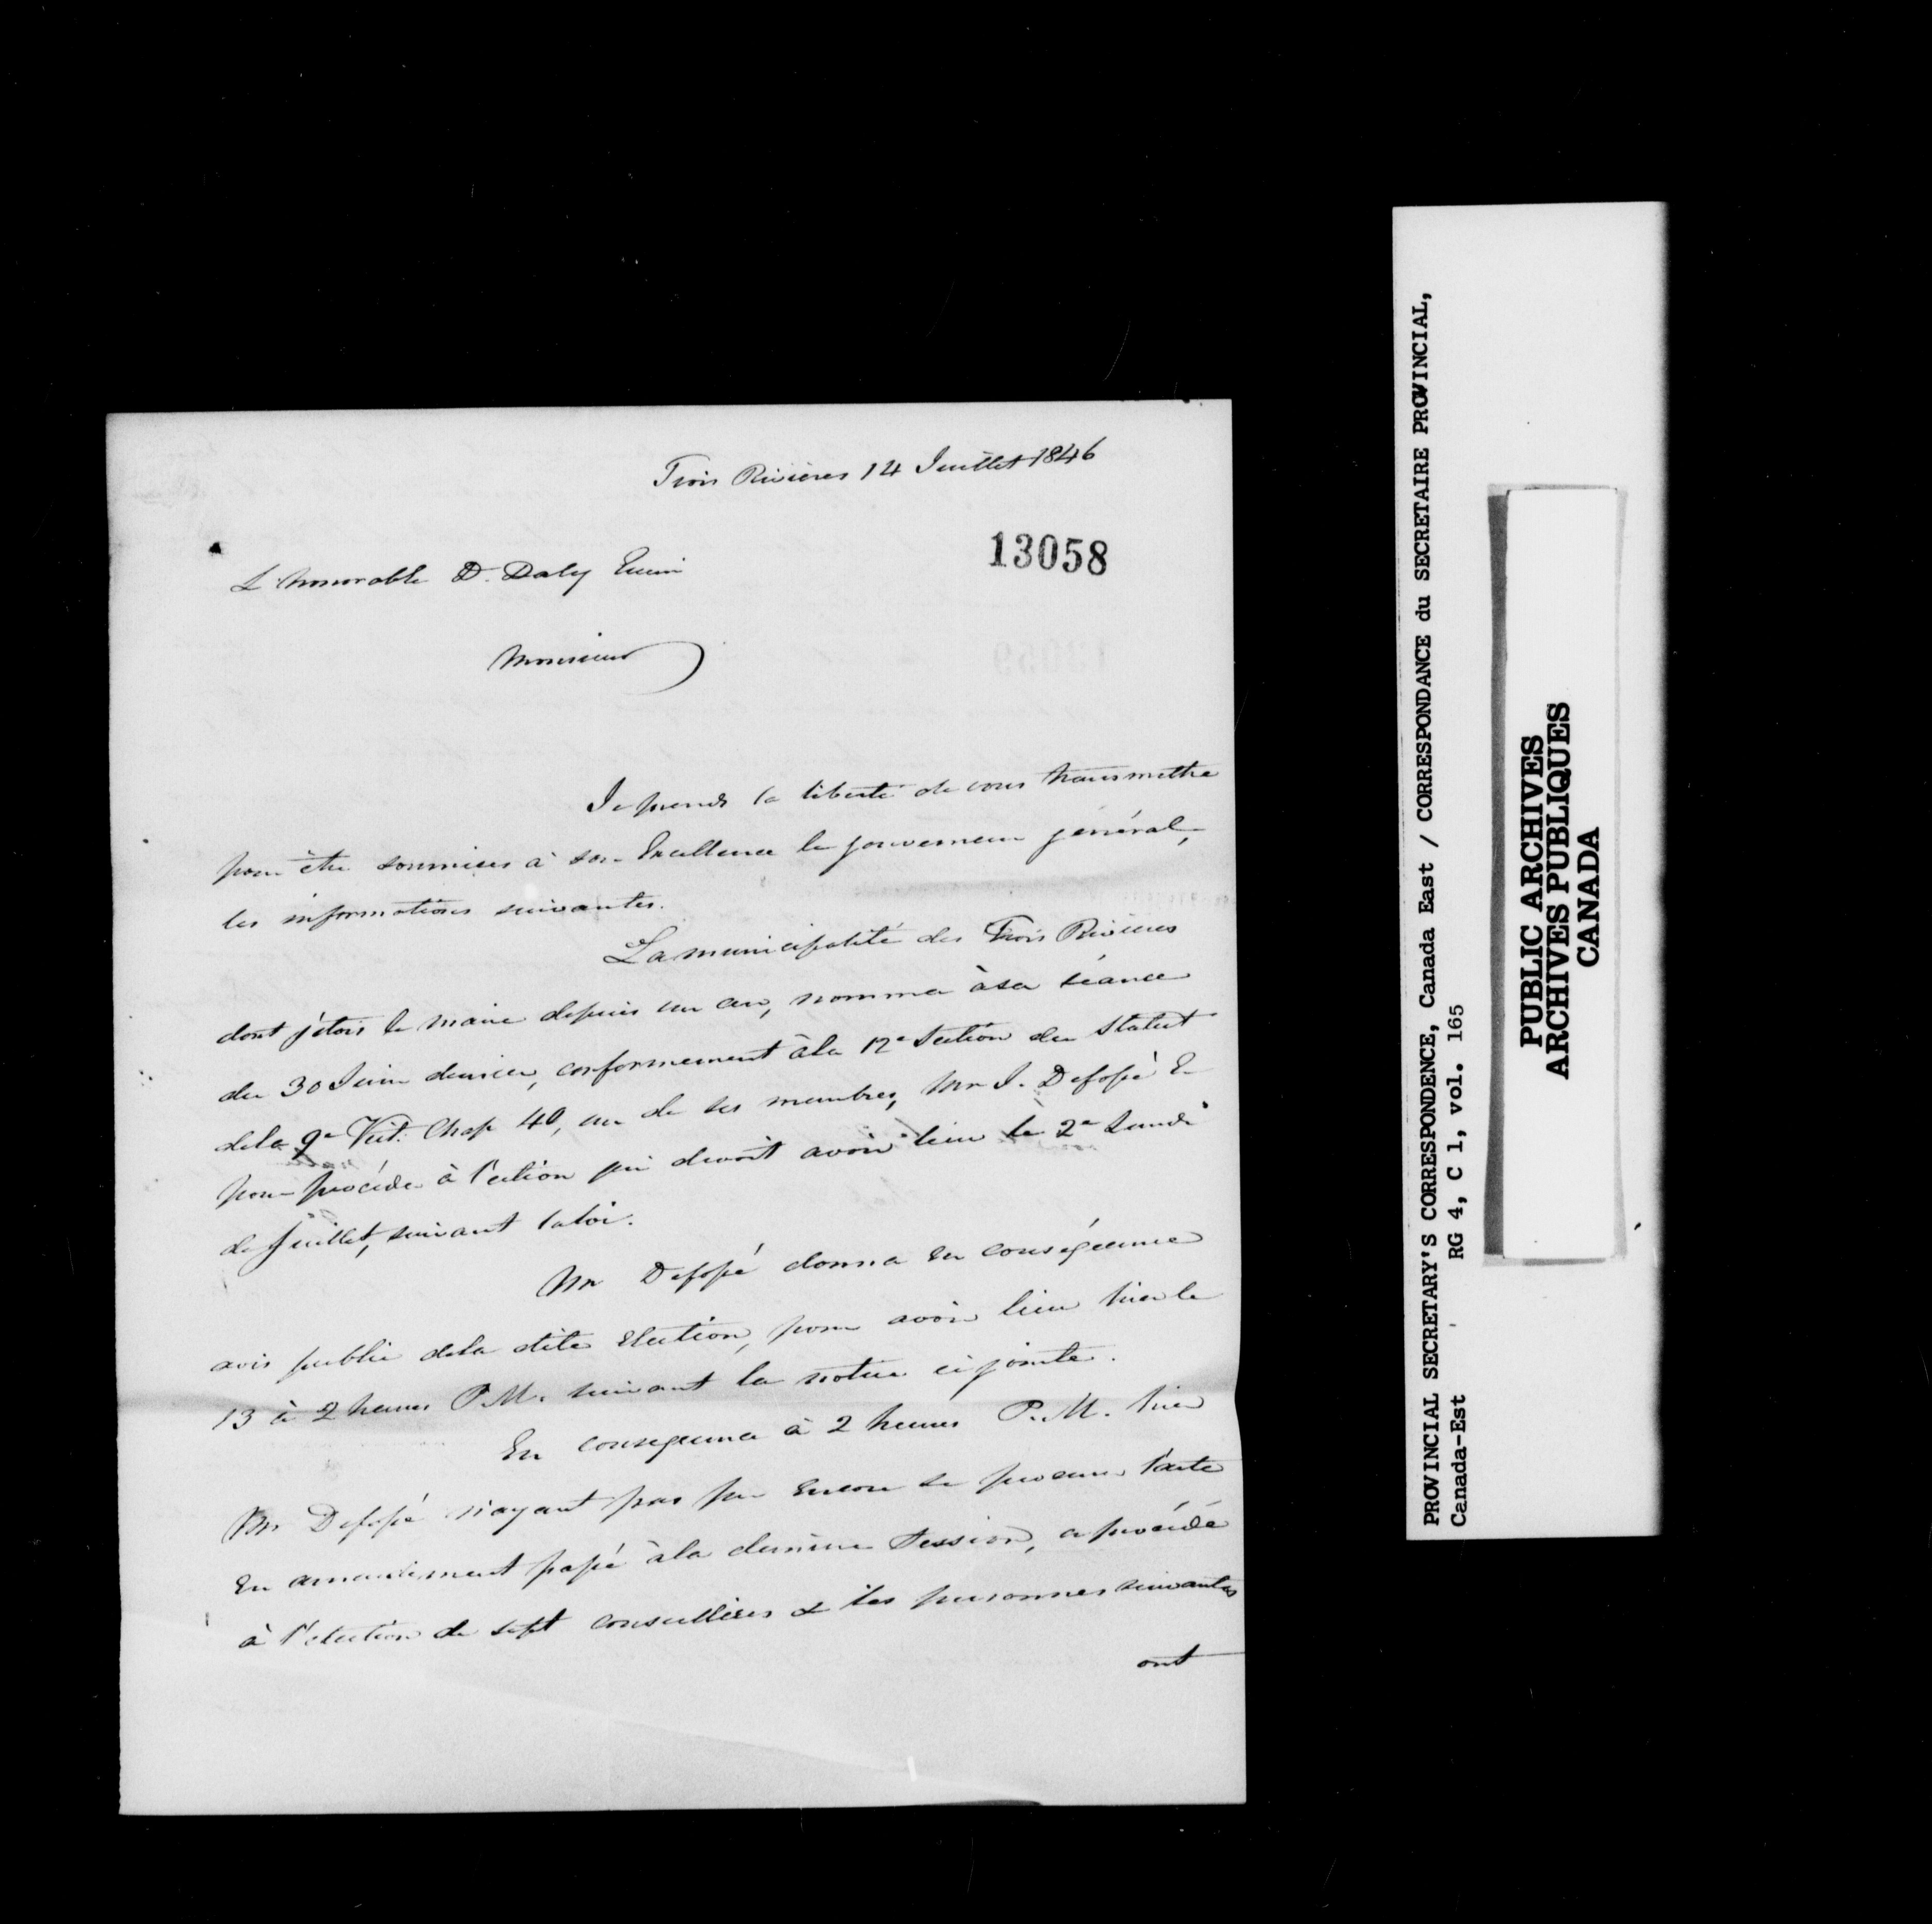 Trois Rivières 14 Juillet 1846
13058
L'honorable D. Daly Ecuier
Monsieur
Je prends la liberté de vous transmettre
pour être soumises à son Excellence le gouverneur général,
les informations suivantes.
La municipalité des Trois Rivières
dont j'étois le maire depuis un an, nomma à sa séance
du 30 Juin dernier, conformement à la 12e Section du Statut
de la 9e Vict: Chap 40, un de ses membres, Mr J. Defossé E
pour procéder à l'ection qui devoit avoir lieu le 2e Lundi
de Juillet, suivant la loi.
Mr Defossé donna en conséquence
avis public de la dite Election, pour avoir lieu hier le
13 à 2 heures P.M. suivant la notice ci jointe.
En consequence à 2 heures P.M. hier
Mr Defossé n'ayant pas pu encore se procurer l'acte
en amendement passé à la dernière Session, a procédé
à l'election de sept conseillers & les personnes suivantes
ont
PROVINCIAL SECRETARY'S CORRESPONDENCE, Canada East / CORRESPONDANCE du SECRETAIRE PROVINCIAL,
Canada-Est RG 4, C 1, vol. 165
PUBLIC ARCHIVES
ARCHIVES PUBLIQUES
CANADA